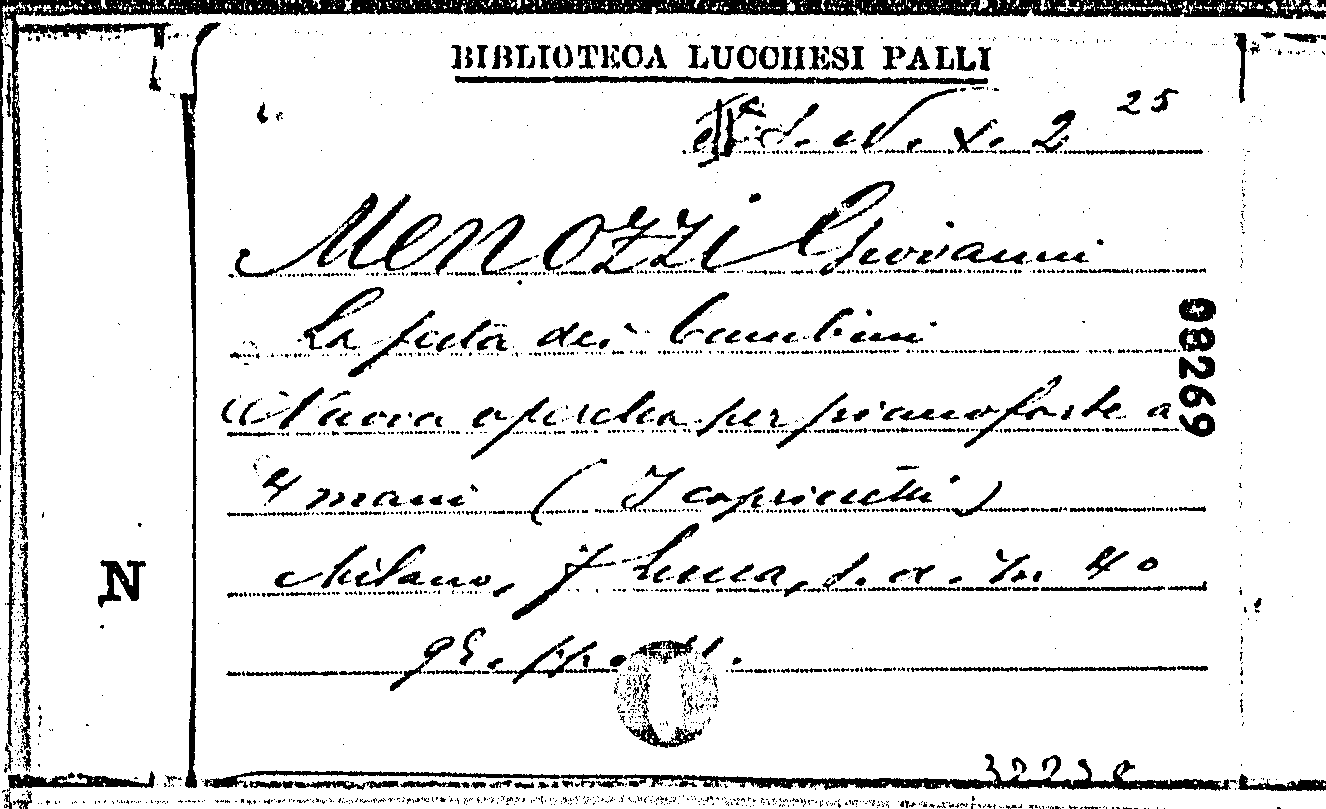 BIBLIOTECA LUCCHESI PALLI
IIa S. N. X. 2 25
MENOZZI Giovanni
La fata dei bambini
Nuova operetta per pianoforte a
4 mani (I capricetti)
Milano, F Lucca, s. a. In 4o
gr. pp.
08269
N